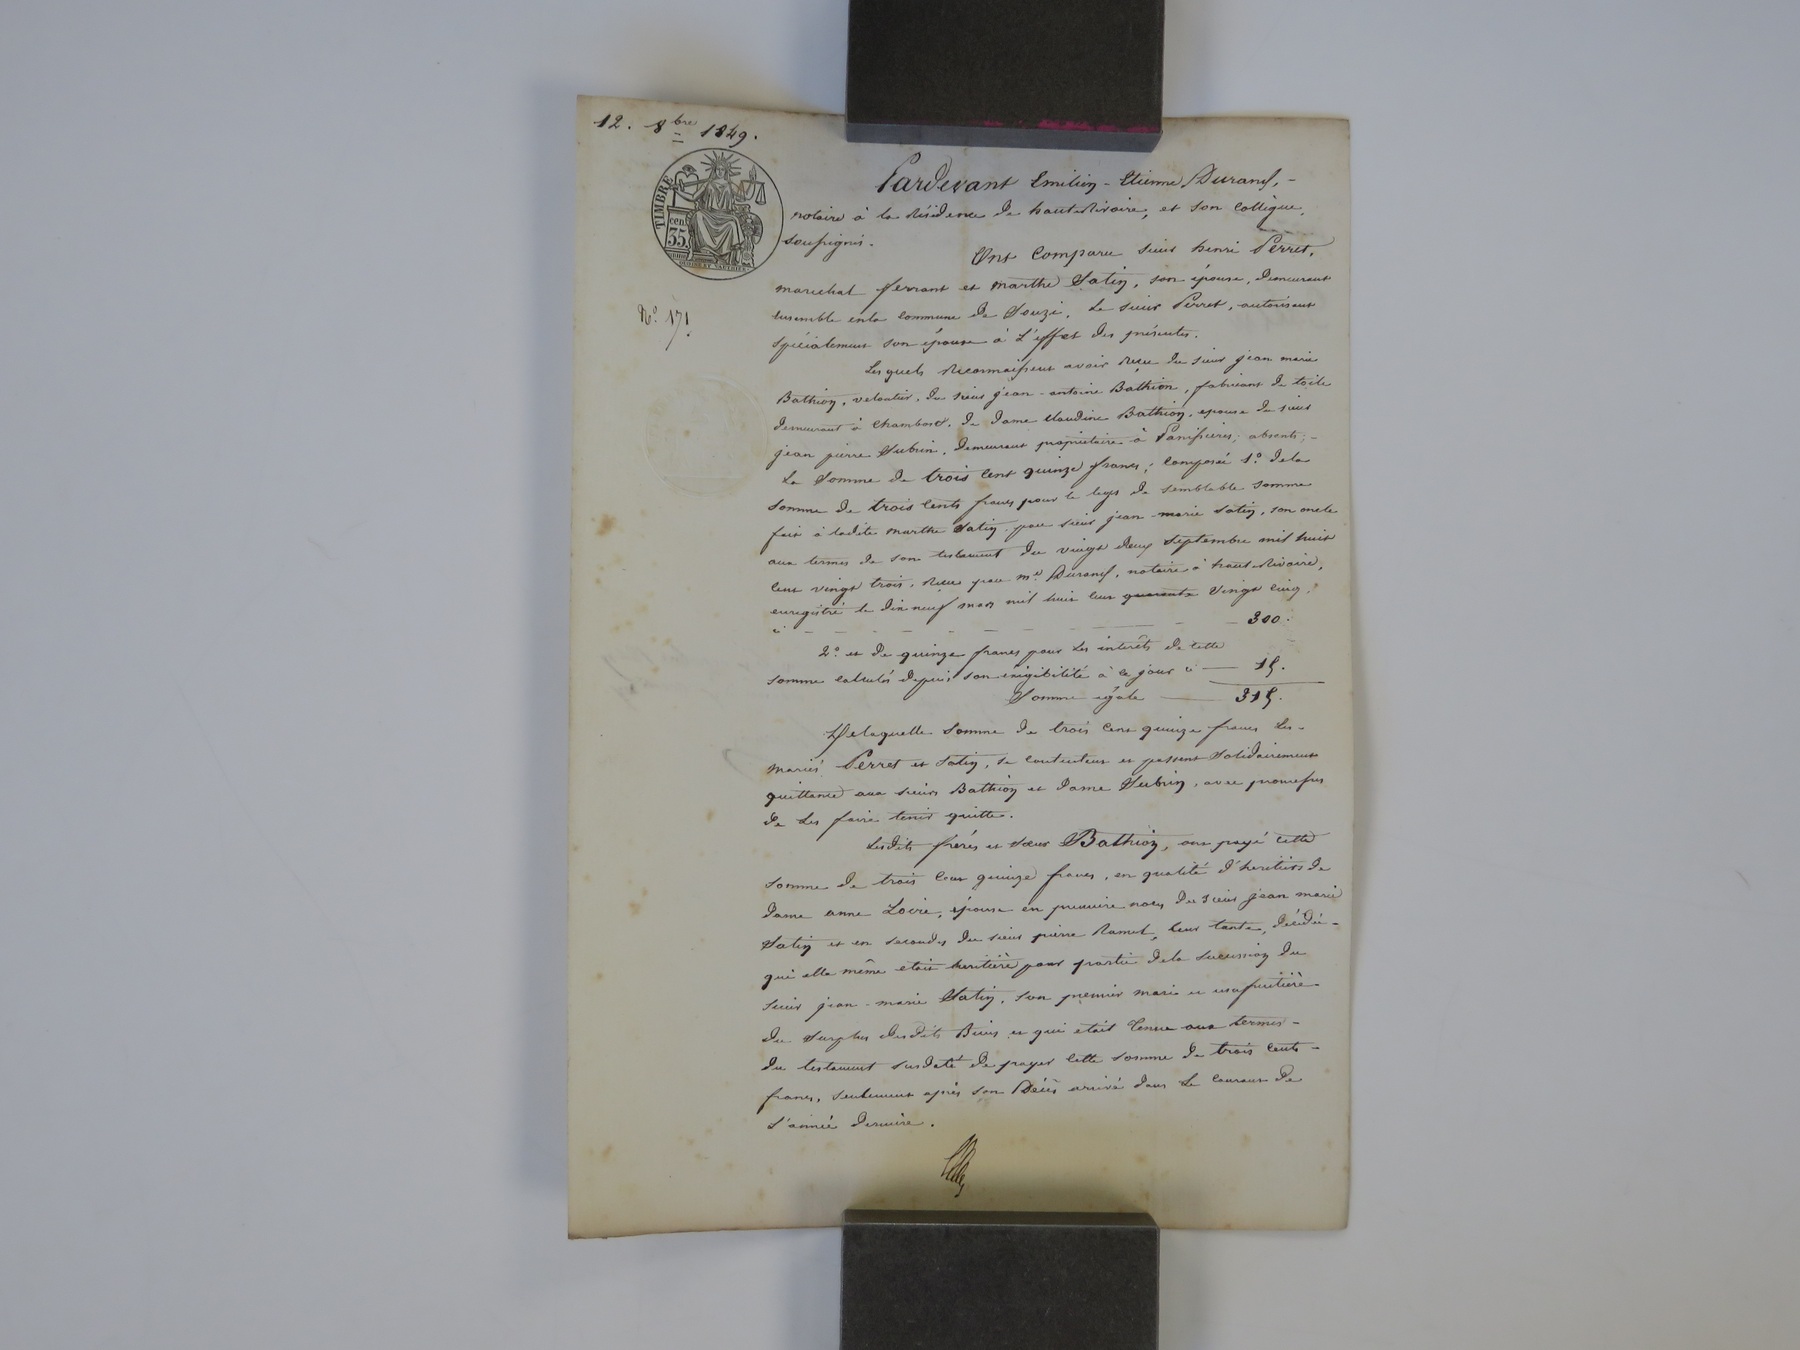 12. 8bre 1849.
TIMBRE
cen.
35
No. 171.
Pardevant Emilien - Etienne Durand, -
notaire à la Résidence de haut Rivoire, et son collègue,
soussignés.
Ont Comparu sieur henri Perret,
marechal ferrant et marthe Satin, son épouse, demeurant
ensemble en la commune de Souzi, Le sieur Perret, autorisant
spécialement son épouse à L'effet des présentes.
Les quels Reconnaissent avoir Reçu du sieur jean marie
Bathion, veloutier, du sieur jean-antoine Bathion, fabricant de toile
demeurant à Chambost, de dame claudine Bathion, epouse de sieur
jean pierre Subrin, demeurant propriétaire à Panissières; absents; -
La Somme de trois Cent quinze francs; Composée 1o. de la
Somme de trois Cents francs pour le legs de semblable somme
fait à ladite marthe Satin, par sieur jean-marie Satin, son oncle
aux termes de son testament du vingt deux septembre mil huit
Cent vingt trois, Reçu par me. Durand, notaire à haut Rivoire,
enregistré le dix neuf mars mil huit Cent quarante vingt cinq,
ci - - - - - - 300.
2o. et de quinze francs pour Les intérêts de cette
somme calculés depuis son exigibilité à ce jour ci — 15.
Somme égale — 315.
De laquelle Somme de trois Cent quinze francs Les -
mariés Perret et Satin, se contentent et passent Solidairement
quittance aux sieurs Bathion et dame Subrin, avec promesses
de Les faire tenir quitte.
Lesdits frères et sœur Bathion, ont payé cette
Somme de trois Cent quinze francs, en qualité d'heritiers de
dame anne Loire, épouse en premiere noces du sieur jean marie
Satin et en secondes du sieur pierre Ramel, leur tante, décédée -
qui elle même etait heritière pour partie de la succession du
sieur jean-marie Satin, son premier mari et usufruitière
du Surplus desdits Biens et qui etait Tenue aux termes -
du testament susdaté de payer Cette somme de trois Cents -
francs, seulement après son Décès arrivé dans Le Courant de
L'année dernière.